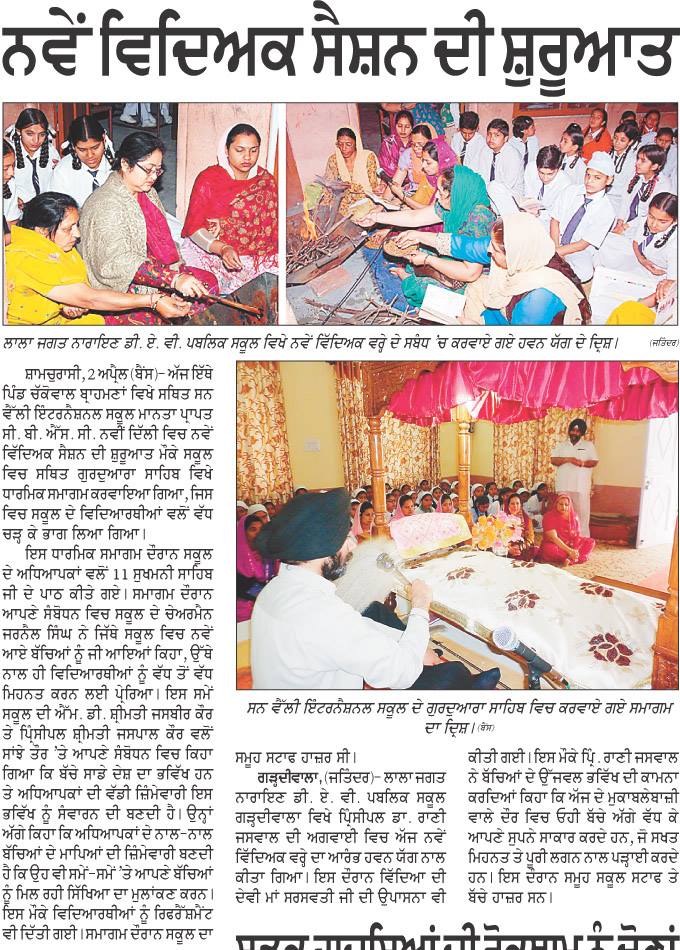 ਨਵੇਂ ਵਿਦਿਅਕ ਸੈਸ਼ਨ ਦੀ ਸ਼ੁਰੂਆਤ
ਲਾਲਾ ਜਗਤ ਨਾਰਾਇਣ ਡੀ. ਏ. ਵੀ. ਪਬਲਿਕ ਸਕੂਲ ਵਿਖੇ ਨਵੇਂ ਵਿੱਦਿਅਕ ਵਰ੍ਹੇ ਦੇ ਸਬੰਧ 'ਚ ਕਰਵਾਏ ਗਏ ਹਵਨ ਯੱਗ ਦੇ ਦ੍ਰਿਸ਼। (ਜਤਿੰਦਰ)
ਸ਼ਾਮਚੁਰਾਸੀ, 2 ਅਪ੍ਰੈਲ (ਬੈਂਸ)- ਅੱਜ ਇੱਥੇ
ਪਿੰਡ ਚੱਕੋਵਾਲ ਬ੍ਰਾਹਮਣਾਂ ਵਿਖੇ ਸਥਿਤ ਸਨ
ਵੈੱਲੀ ਇੰਟਰਨੈਸ਼ਨਲ ਸਕੂਲ ਮਾਨਤਾ ਪ੍ਰਾਪਤ
ਸੀ. ਬੀ. ਐੱਸ. ਸੀ. ਨਵੀਂ ਦਿੱਲੀ ਵਿਚ ਨਵੇਂ
ਵਿੱਦਿਅਕ ਸੈਸ਼ਨ ਦੀ ਸ਼ੁਰੂਆਤ ਮੌਕੇ ਸਕੂਲ
ਵਿਚ ਸਥਿਤ ਗੁਰਦੁਆਰਾ ਸਾਹਿਬ ਵਿਖੇ
ਧਾਰਮਿਕ ਸਮਾਗਮ ਕਰਵਾਇਆ ਗਿਆ, ਜਿਸ
ਵਿਚ ਸਕੂਲ ਦੇ ਵਿਦਿਆਰਥੀਆਂ ਵਲੋਂ ਵੱਧ
ਚੜ੍ਹ ਕੇ ਭਾਗ ਲਿਆ ਗਿਆ।
ਇਸ ਧਾਰਮਿਕ ਸਮਾਗਮ ਦੌਰਾਨ ਸਕੂਲ
ਦੇ ਅਧਿਆਪਕਾਂ ਵਲੋਂ 11 ਸੁਖਮਨੀ ਸਾਹਿਬ
ਜੀ ਦੇ ਪਾਠ ਕੀਤੇ ਗਏ। ਸਮਾਗਮ ਦੌਰਾਨ
ਆਪਣੇ ਸੰਬੋਧਨ ਵਿਚ ਸਕੂਲ ਦੇ ਚੇਅਰਮੈਨ
ਜਰਨੈਲ ਸਿੰਘ ਨੇ ਜਿੱਥੇ ਸਕੂਲ ਵਿਚ ਨਵੇਂ
ਆਏ ਬੱਚਿਆਂ ਨੂੰ ਜੀ ਆਇਆਂ ਕਿਹਾ, ਉੱਥੇ
ਨਾਲ ਹੀ ਵਿਦਿਆਰਥੀਆਂ ਨੂੰ ਵੱਧ ਤੋਂ ਵੱਧ
ਮਿਹਨਤ ਕਰਨ ਲਈ ਪ੍ਰੇਰਿਆ। ਇਸ ਸਮੇਂ
ਸਕੂਲ ਦੀ ਐੱਮ. ਡੀ. ਸ਼੍ਰੀਮਤੀ ਜਸਬੀਰ ਕੌਰ
ਤੇ ਪ੍ਰਿੰਸੀਪਲ ਸ਼੍ਰੀਮਤੀ ਜਸਪਾਲ ਕੌਰ ਵਲੋਂ
ਸਾਂਝੇ ਤੌਰ 'ਤੇ ਆਪਣੇ ਸੰਬੋਧਨ ਵਿਚ ਕਿਹਾ
ਗਿਆ ਕਿ ਬੱਚੇ ਸਾਡੇ ਦੇਸ਼ ਦਾ ਭਵਿੱਖ ਹਨ
ਤੇ ਅਧਿਆਪਕਾਂ ਦੀ ਵੱਡੀ ਜ਼ਿੰਮੇਵਾਰੀ ਇਸ
ਭਵਿੱਖ ਨੂੰ ਸੰਵਾਰਨ ਦੀ ਬਣਦੀ ਹੈ। ਉਨ੍ਹਾਂ
ਅੱਗੇ ਕਿਹਾ ਕਿ ਅਧਿਆਪਕਾਂ ਦੇ ਨਾਲ-ਨਾਲ
ਬੱਚਿਆਂ ਦੇ ਮਾਪਿਆਂ ਦੀ ਜ਼ਿੰਮੇਵਾਰੀ ਬਣਦੀ
ਹੈ ਕਿ ਉਹ ਵੀ ਸਮੇਂ-ਸਮੇਂ 'ਤੇ ਆਪਣੇ ਬੱਚਿਆਂ
ਨੂੰ ਮਿਲ ਰਹੀ ਸਿੱਖਿਆ ਦਾ ਮੁਲਾਂਕਣ ਕਰਨ।
ਇਸ ਮੌਕੇ ਵਿਦਿਆਰਥੀਆਂ ਨੂੰ ਰਿਫਰੈੱਸ਼ਮੈਂਟ
ਵੀ ਦਿੱਤੀ ਗਈ। ਸਮਾਗਮ ਦੌਰਾਨ ਸਕੂਲ ਦਾ
ਸਨ ਵੈੱਲੀ ਇੰਟਰਨੈਸ਼ਨਲ ਸਕੂਲ ਦੇ ਗੁਰਦੁਆਰਾ ਸਾਹਿਬ ਵਿਚ ਕਰਵਾਏ ਗਏ ਸਮਾਗਮ
ਦਾ ਦ੍ਰਿਸ਼। (ਬੈਂਸ)
ਸਮੂਹ ਸਟਾਫ ਹਾਜ਼ਰ ਸੀ।
ਗੜ੍ਹਦੀਵਾਲਾ, (ਜਤਿੰਦਰ)- ਲਾਲਾ ਜਗਤ
ਨਾਰਾਇਣ ਡੀ. ਏ. ਵੀ. ਪਬਲਿਕ ਸਕੂਲ
ਗੜ੍ਹਦੀਵਾਲਾ ਵਿਖੇ ਪ੍ਰਿੰਸੀਪਲ ਡਾ. ਰਾਣੀ
ਜਸਵਾਲ ਦੀ ਅਗਵਾਈ ਵਿਚ ਅੱਜ ਨਵੇਂ
ਵਿੱਦਿਅਕ ਵਰ੍ਹੇ ਦਾ ਆਰੰਭ ਹਵਨ ਯੱਗ ਨਾਲ
ਕੀਤਾ ਗਿਆ। ਇਸ ਦੌਰਾਨ ਵਿੱਦਿਆ ਦੀ
ਦੇਵੀ ਮਾਂ ਸਰਸਵਤੀ ਜੀ ਦੀ ਉਪਾਸਨਾ ਵੀ
ਕੀਤੀ ਗਈ। ਇਸ ਮੌਕੇ ਪ੍ਰਿੰ. ਰਾਣੀ ਜਸਵਾਲ
ਨੇ ਬੱਚਿਆਂ ਦੇ ਉੱਜਵਲ ਭਵਿੱਖ ਦੀ ਕਾਮਨਾ
ਕਰਦਿਆਂ ਕਿਹਾ ਕਿ ਅੱਜ ਦੇ ਮੁਕਾਬਲੇਬਾਜ਼ੀ
ਵਾਲੇ ਦੌਰ ਵਿਚ ਓਹੀ ਬੱਚੇ ਅੱਗੇ ਵੱਧ ਕੇ
ਆਪਣੇ ਸੁਪਨੇ ਸਾਕਾਰ ਕਰਦੇ ਹਨ, ਜੋ ਸਖਤ
ਮਿਹਨਤ ਤੇ ਪੂਰੀ ਲਗਨ ਨਾਲ ਪੜ੍ਹਾਈ ਕਰਦੇ
ਹਨ। ਇਸ ਦੌਰਾਨ ਸਮੂਹ ਸਕੂਲ ਸਟਾਫ ਤੇ
ਬੱਚੇ ਹਾਜ਼ਰ ਸਨ।